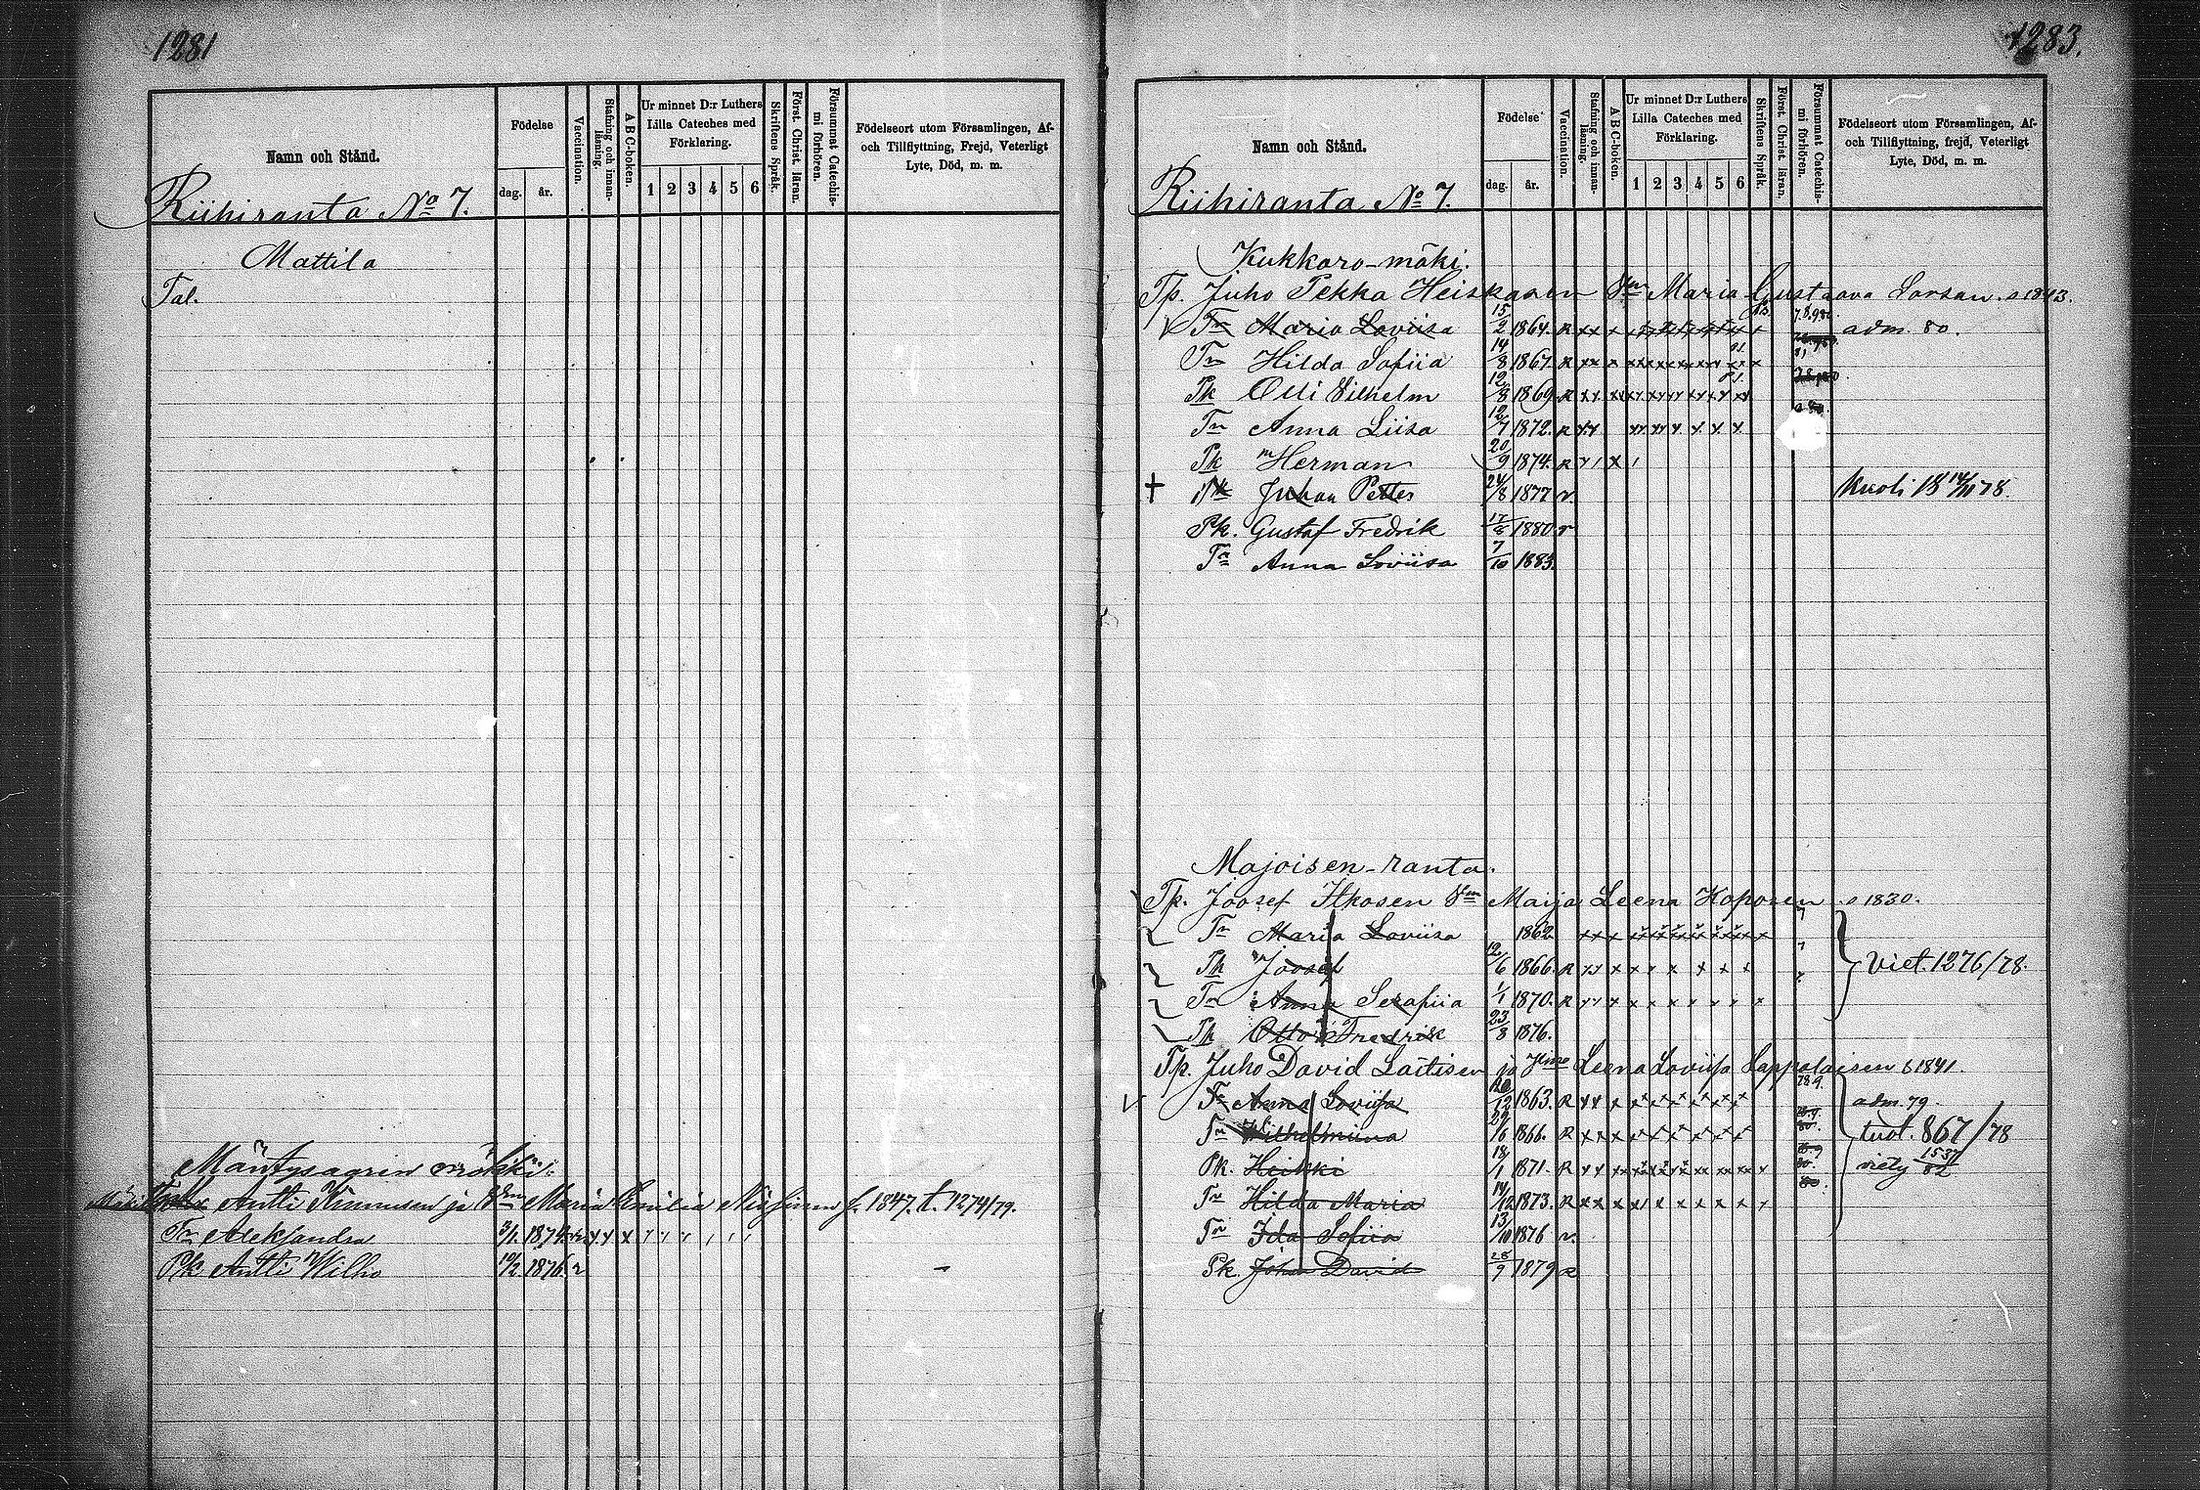 1281
Namn och Stånd.
Födelse
dag. år.
Vaccination.
Stafning och innan-läsning.
A B C-boken.
Ur minnet D:r Luthers Lilla Cateches med Förklaring.
1 2 3 4 5 6
Skriftens Språk.
Först. Christ. läran.
Försummat Catechis-mi förhören.
Födelseort utom Församlingen, Af- och Tillflyttning, Frejd, Veterligt Lyte, Död, m. m.
Riihiranta No 7.
Mattila
Tal.
Mäntysaarin mökki:
Antti Kinnusen ja Vmn Maria Emilia f. 1847. t. 1274/79.
Tr Aleksandra 3/1 1874.
Pk Antti Wilho 10/2 1876. r
1283.
Namn och Stånd.
Födelse
dag. år.
Vaccination.
Stafning och innan-läsning.
A B C-boken.
Ur minnet D:r Luthers Lilla Cateches med Förklaring.
1 2 3 4 5 6
Skriftens Språk.
Först. Christ. läran.
Försummat Catechis-mi förhören.
Födelseort utom Församlingen, Af- och Tillflyttning, frejd, Veterligt Lyte, Död, m. m.
Riihiranta No 7.
Kukkaro-mäki.
Tp. Juho Pekka Heiskasen Vmn Maria Gustaava Sorsan. s 1843.
Tr Maria Loviisa 15/2 1864. R adm. 80.
Tr Hilda Sofiia 14/8 1867. R
Pk Olli Vilhelm 12/8 1869. R
Tr Anna Liisa 12/7 1872. R
Pk Herman 20/9 1874. R
† Pk Juhan Petter 24/8 1877 r. Kuoli 18 14/11 78.
Pk. Gustaf Fredrik 17/6 1880 r
Tr Anna Loviisa 7/10 1883.
Majoisen-ranta.
Tp. Joosef Itkosen Vmn Maija Leena Koposen s 1830.
Tr Maria Loviisa 1862
Pk Joosef 12/6 1866. R Viet. 1276/78.
Tr Anna Serafiia 1/1 1870. R
Pk Otto Fredrik 23/8 1876.
Tp. Juho David Laitisen ja Vmn Leena Loviisa Lappalaisen s 1841.
Tr Anna Loviisa 26/12 1863. R adm. 79.
Tr Wilhelmiina 22/6 1866. R tuot. 867/78
Pk. Heikki 18/1 1871. R viety 1537/82
Tr Hilda Maria 14/12 1873. R
Tr Ida Sofiia 13/10 1876 r.
Pk. Johan David 28/9 1879 R